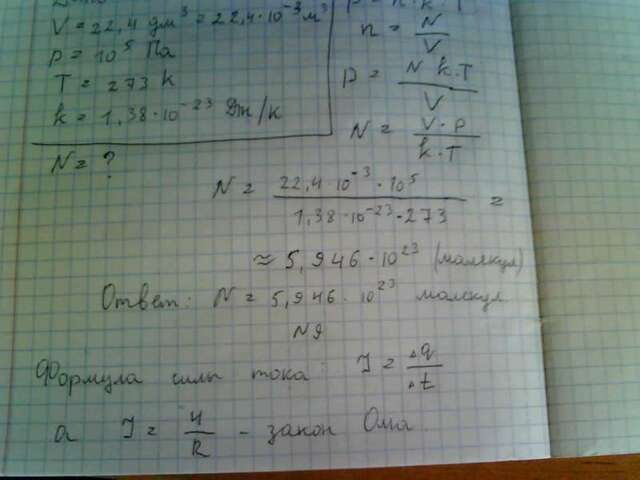 V = 22,4 дм³ = 22,4·10⁻³ м³
p = 10⁵ Па
T = 273 К
k = 1,38·10⁻²³ Дж/К
N = ?
n = N/V
p = N k·T / V
N = V·p / k·T
N = 22,4·10⁻³·10⁵ / 1,38·10⁻²³·273 =
≈ 5,946·10²³ (молекул)
Ответ: N = 5,946·10²³ молекул
N9
Формула силы тока: I = Δq/Δt
а I = U/R - закон Ома